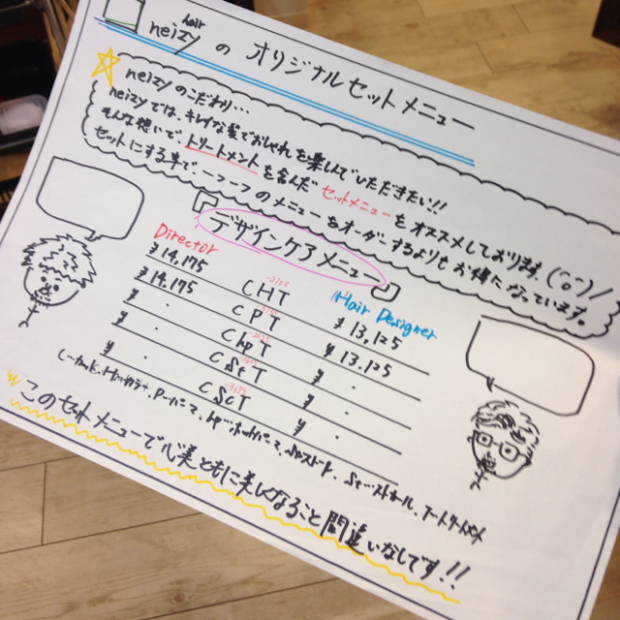 hair
neizyの オリジナルセットメニュー
neizyのこだわり…
neizyでは、キレイな髪でおしゃれを楽しんでいただきたい!!
そんな想いで、トリートメントを含んだ セットメニューをオススメしております。
セットにする事で、一つ一つのメニューをオーダーするよりもお得になっています。
デザインケアメニュー
Director
Hair Designer
¥14,175 CHT ¥13,125
¥14,175 CPT ¥13,125
¥ . ChpT ¥ .
¥ . CStT ¥ .
¥ . CScT ¥ .
このセットメニューで心美ともに美しくなること間違いなしです!!